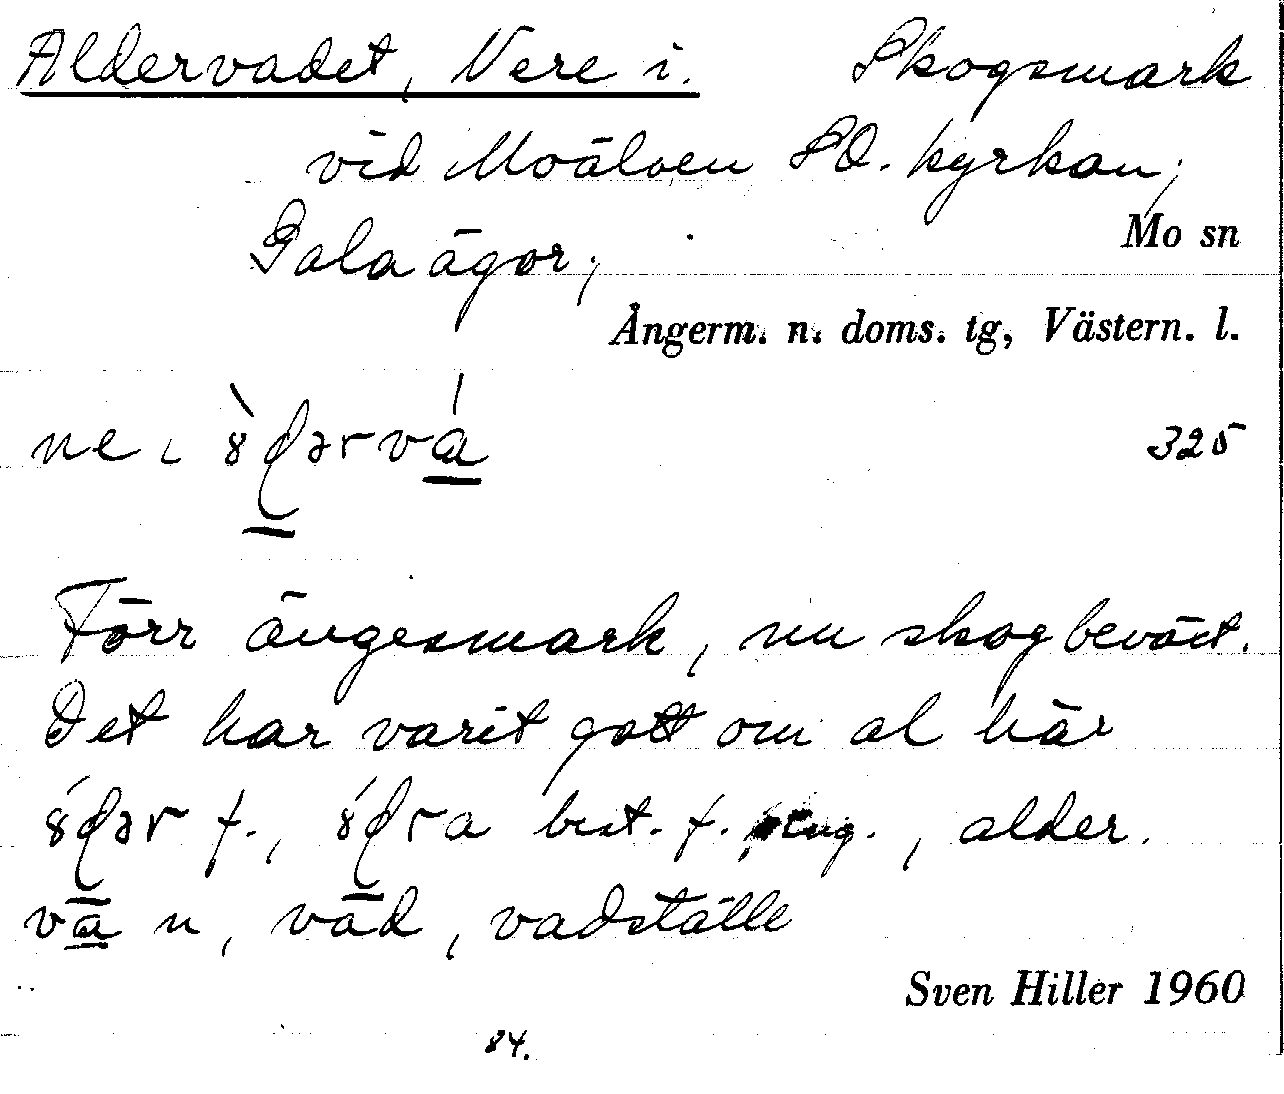 Aldervadet, Nere i. Skogsmark
vid Moälven SO. kyrkan;
Gala ägor;
Mo sn
Ångerm. n. doms. tg, Västern. l.
ne
325
Förr ängesmark, nu skogbeväxt.
Det har varit gott om al här
f., best. f. sing., alder.
n, väd, vadställe
Sven Hiller 1960
84.